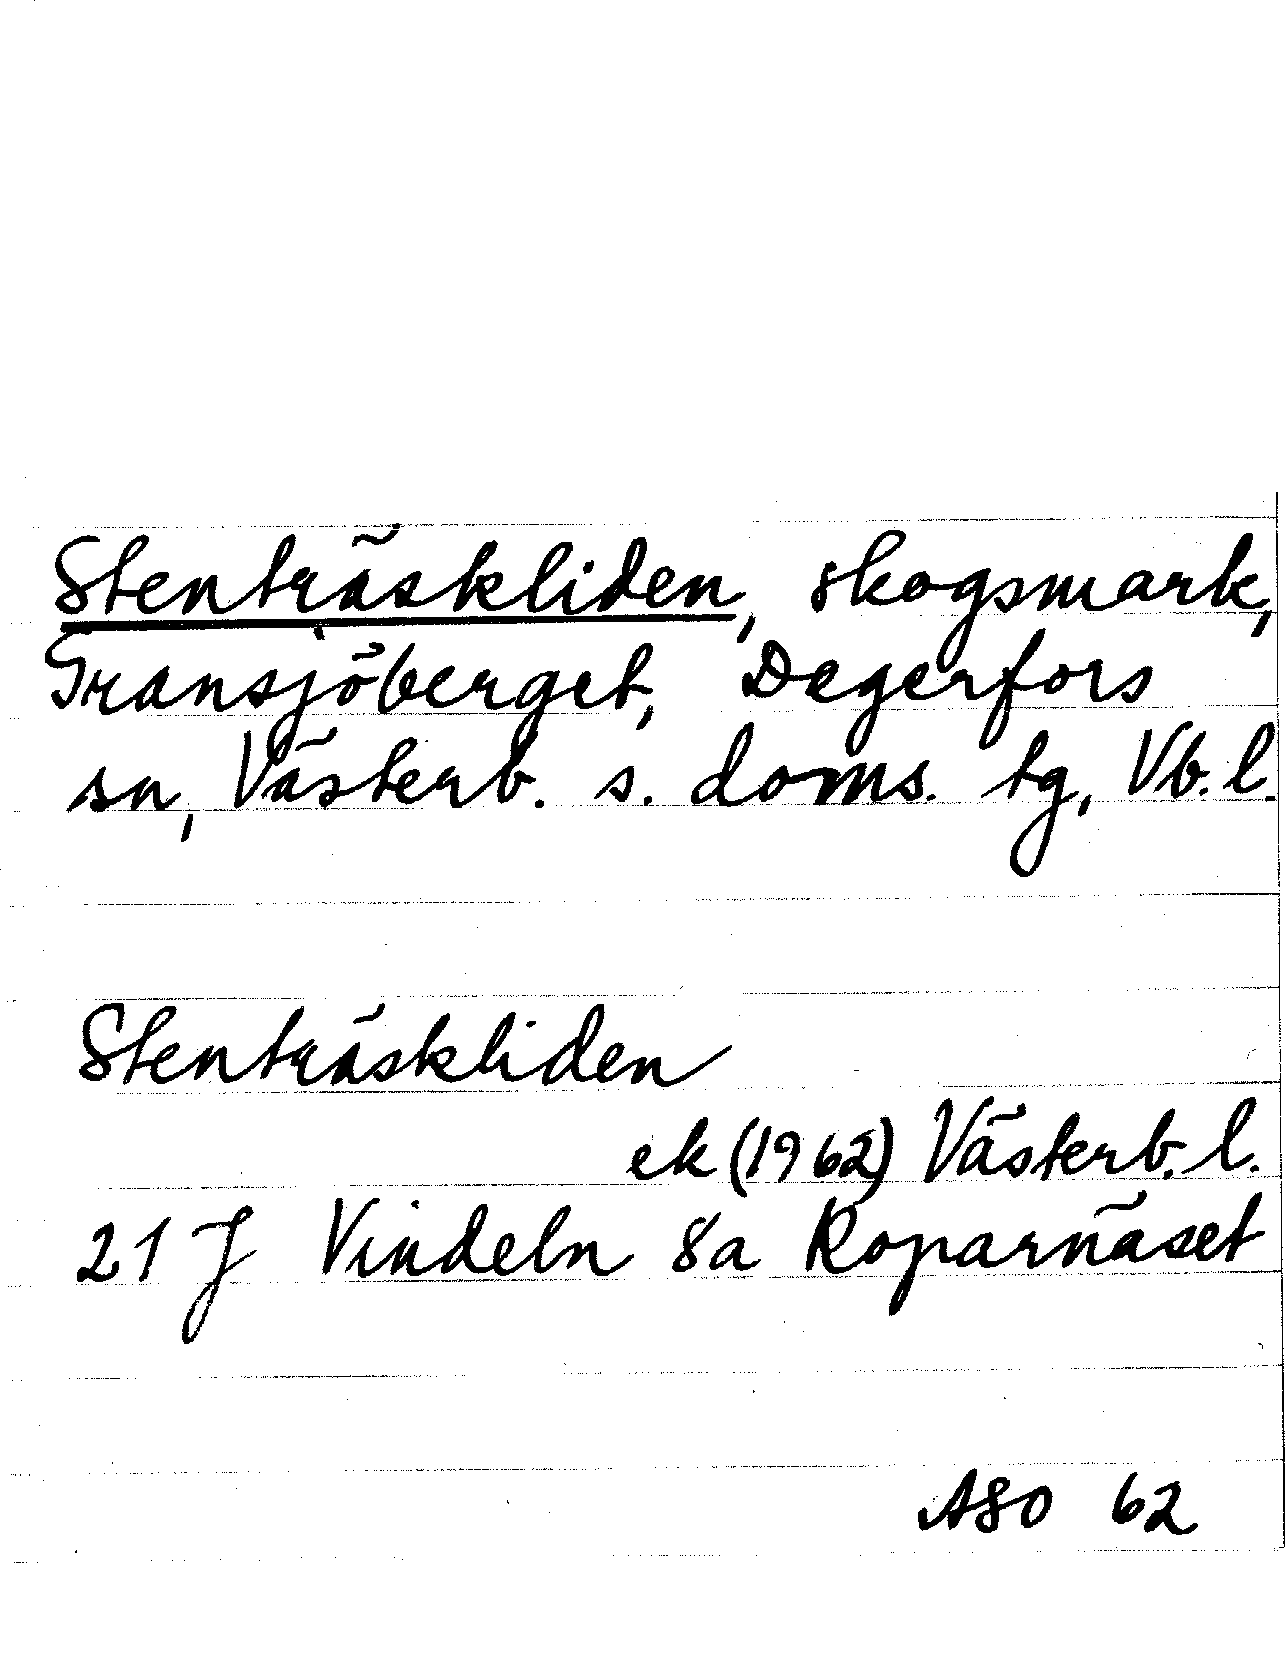 Stenträskliden, skogsmark,
Transjöberget, Degerfors
sn, Västerb. s. doms. tg, Vb. l.
Stenträskliden
ek (1962) Västerb. l.
21 J Vindeln 8a Roparnäset
ASO 62